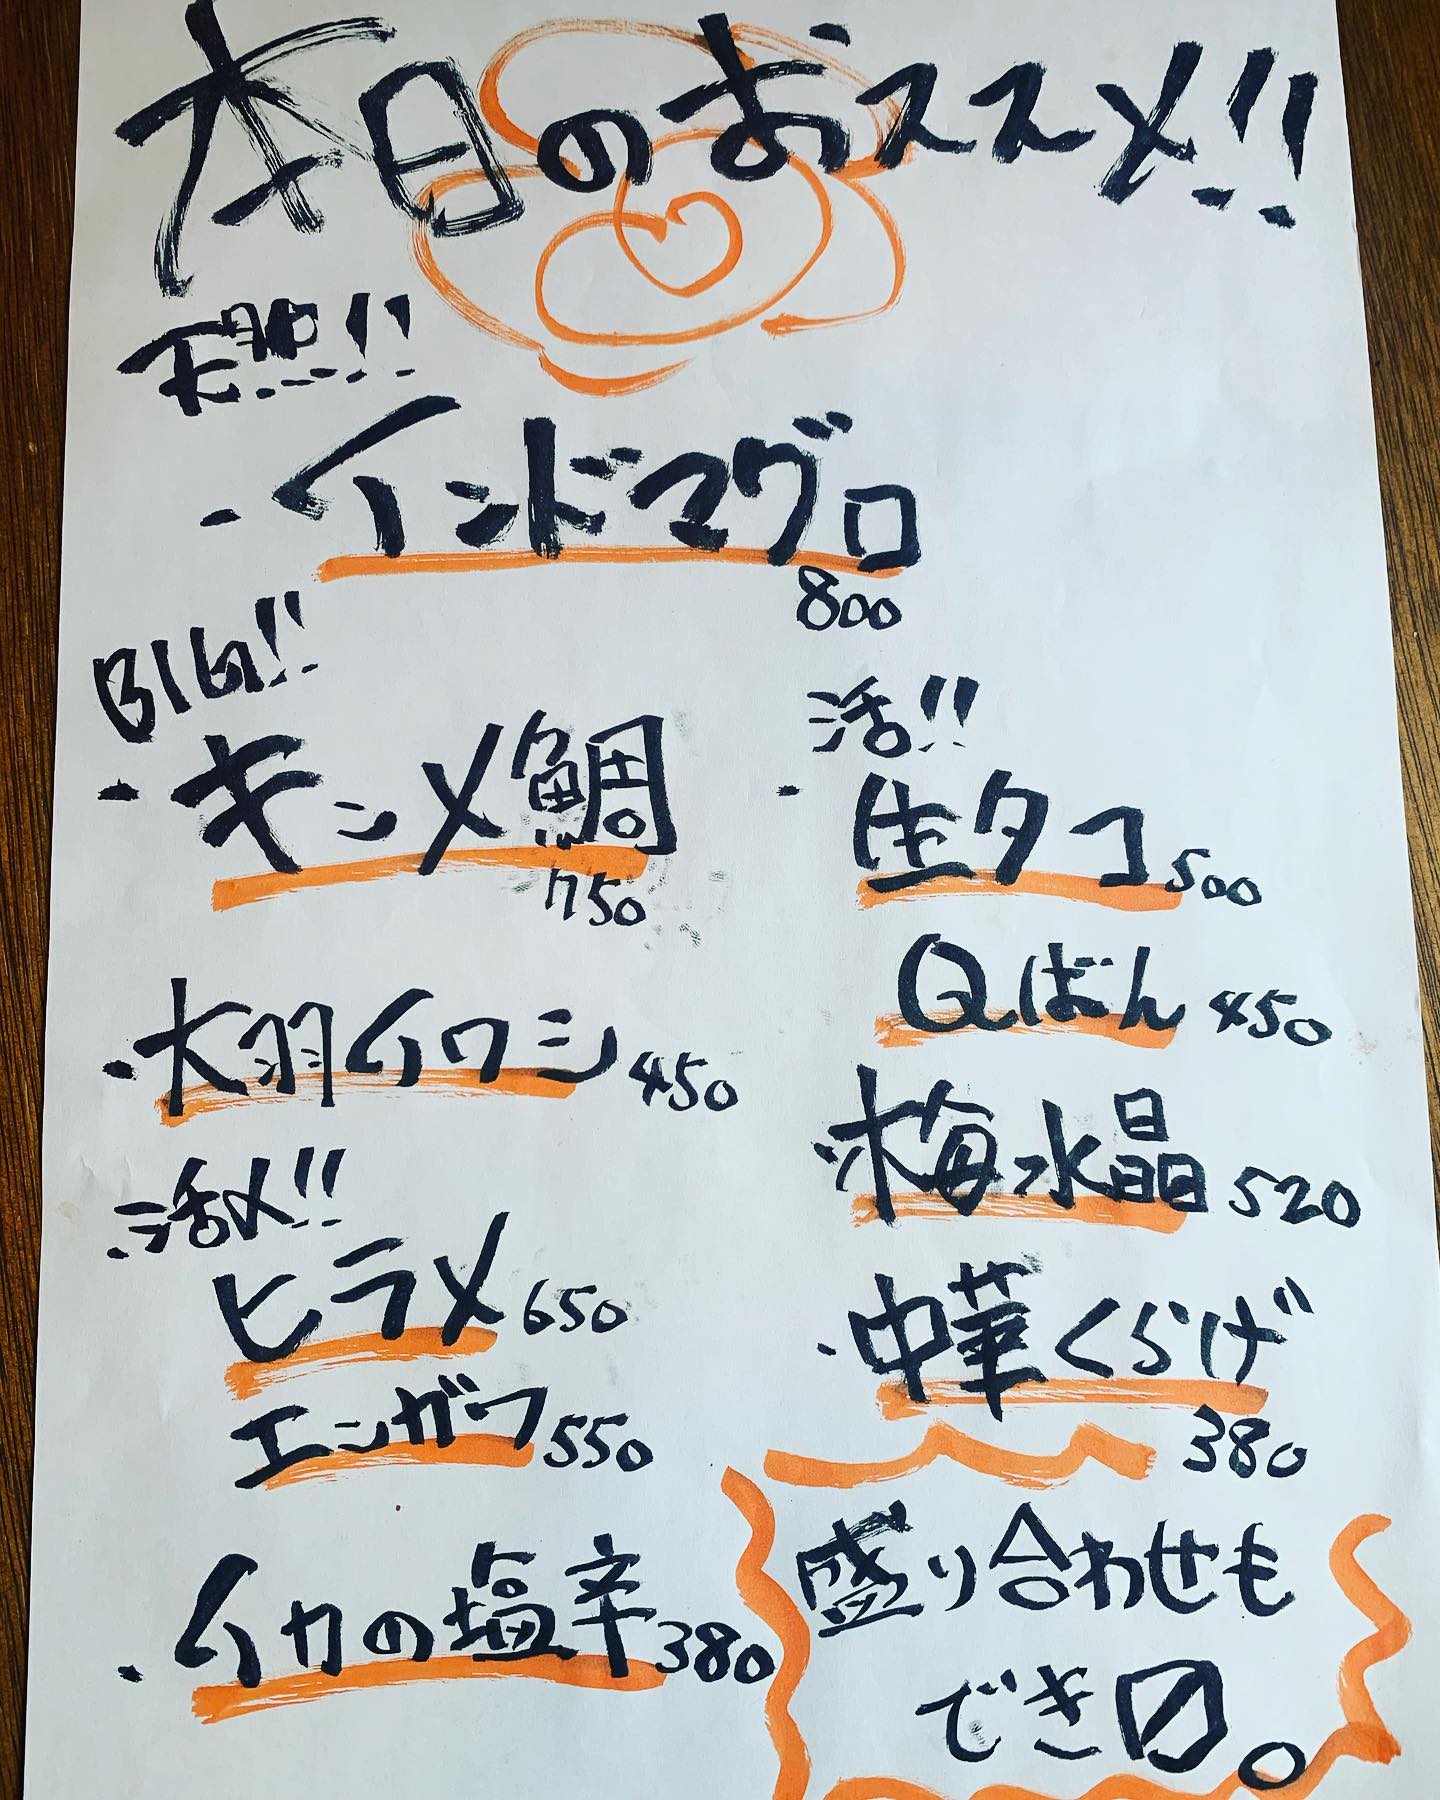 本日のおススメ!!
天然!!
・インドマグロ
800
BIG!!
・キンメ鯛
750
・大羽イワシ 450
活〆!!
ヒラメ 650
エンガワ 550
・イカの塩辛 380
活!!
・生タコ 500
Qばん 450
・梅水晶 520
・中華くらげ
380
盛り合わせも
でき〼。